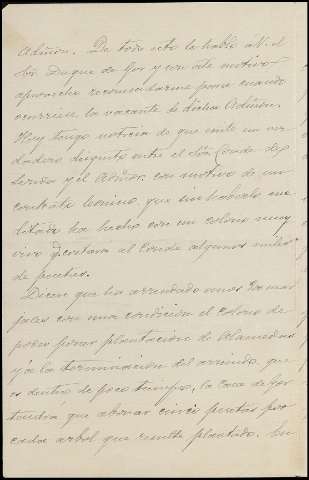 Admon. De todo esto le hablé á V. el
Sr. Duque de Gor y con este motivo
aproveché recomendarme para cuando
ocurriese la vacante de dicha Admon.
Hoy tengo noticia de que existe un ver
dadero disgusto entre el Sor Conde de
Lerida y el Admor. con motivo de un
contrato leonino, que sin haberlo me
ditado ha hecho con un colono muy
vivo y costará al Conde algunos miles
de pesetas.
Dicen que ha arrendado unos
con una condicion el colono de
poder poner plantacion de Alamedas
y á la terminacion del arriendo que
es dentro de poco tiempo, la Casa de Gor
tendrá que abonar cinco pesetas por
cada arbol que resulte plantado. En